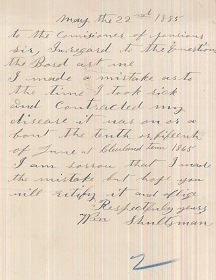 May the 22nd 1885
to the Comisioner of pensions
sir, In regard to the Question
the Bord ast me
I made a mistake as to
the time I took sick
and Contracted my
disease it was on or a
bout the tenth or fifteenth
of June at Cleveland tenn 1865
I am sorrow that I mad
the mistake but hope you
will retify it and oblige
Respectfuly yours
Wm Shultzman
2